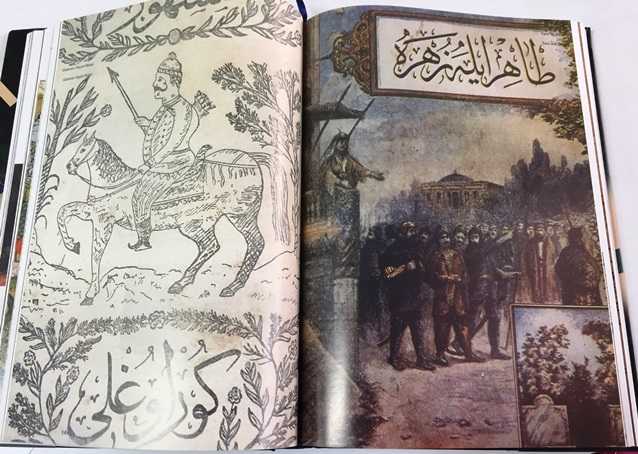 مشهور
كور اوغلى
طاهر ايله زهره